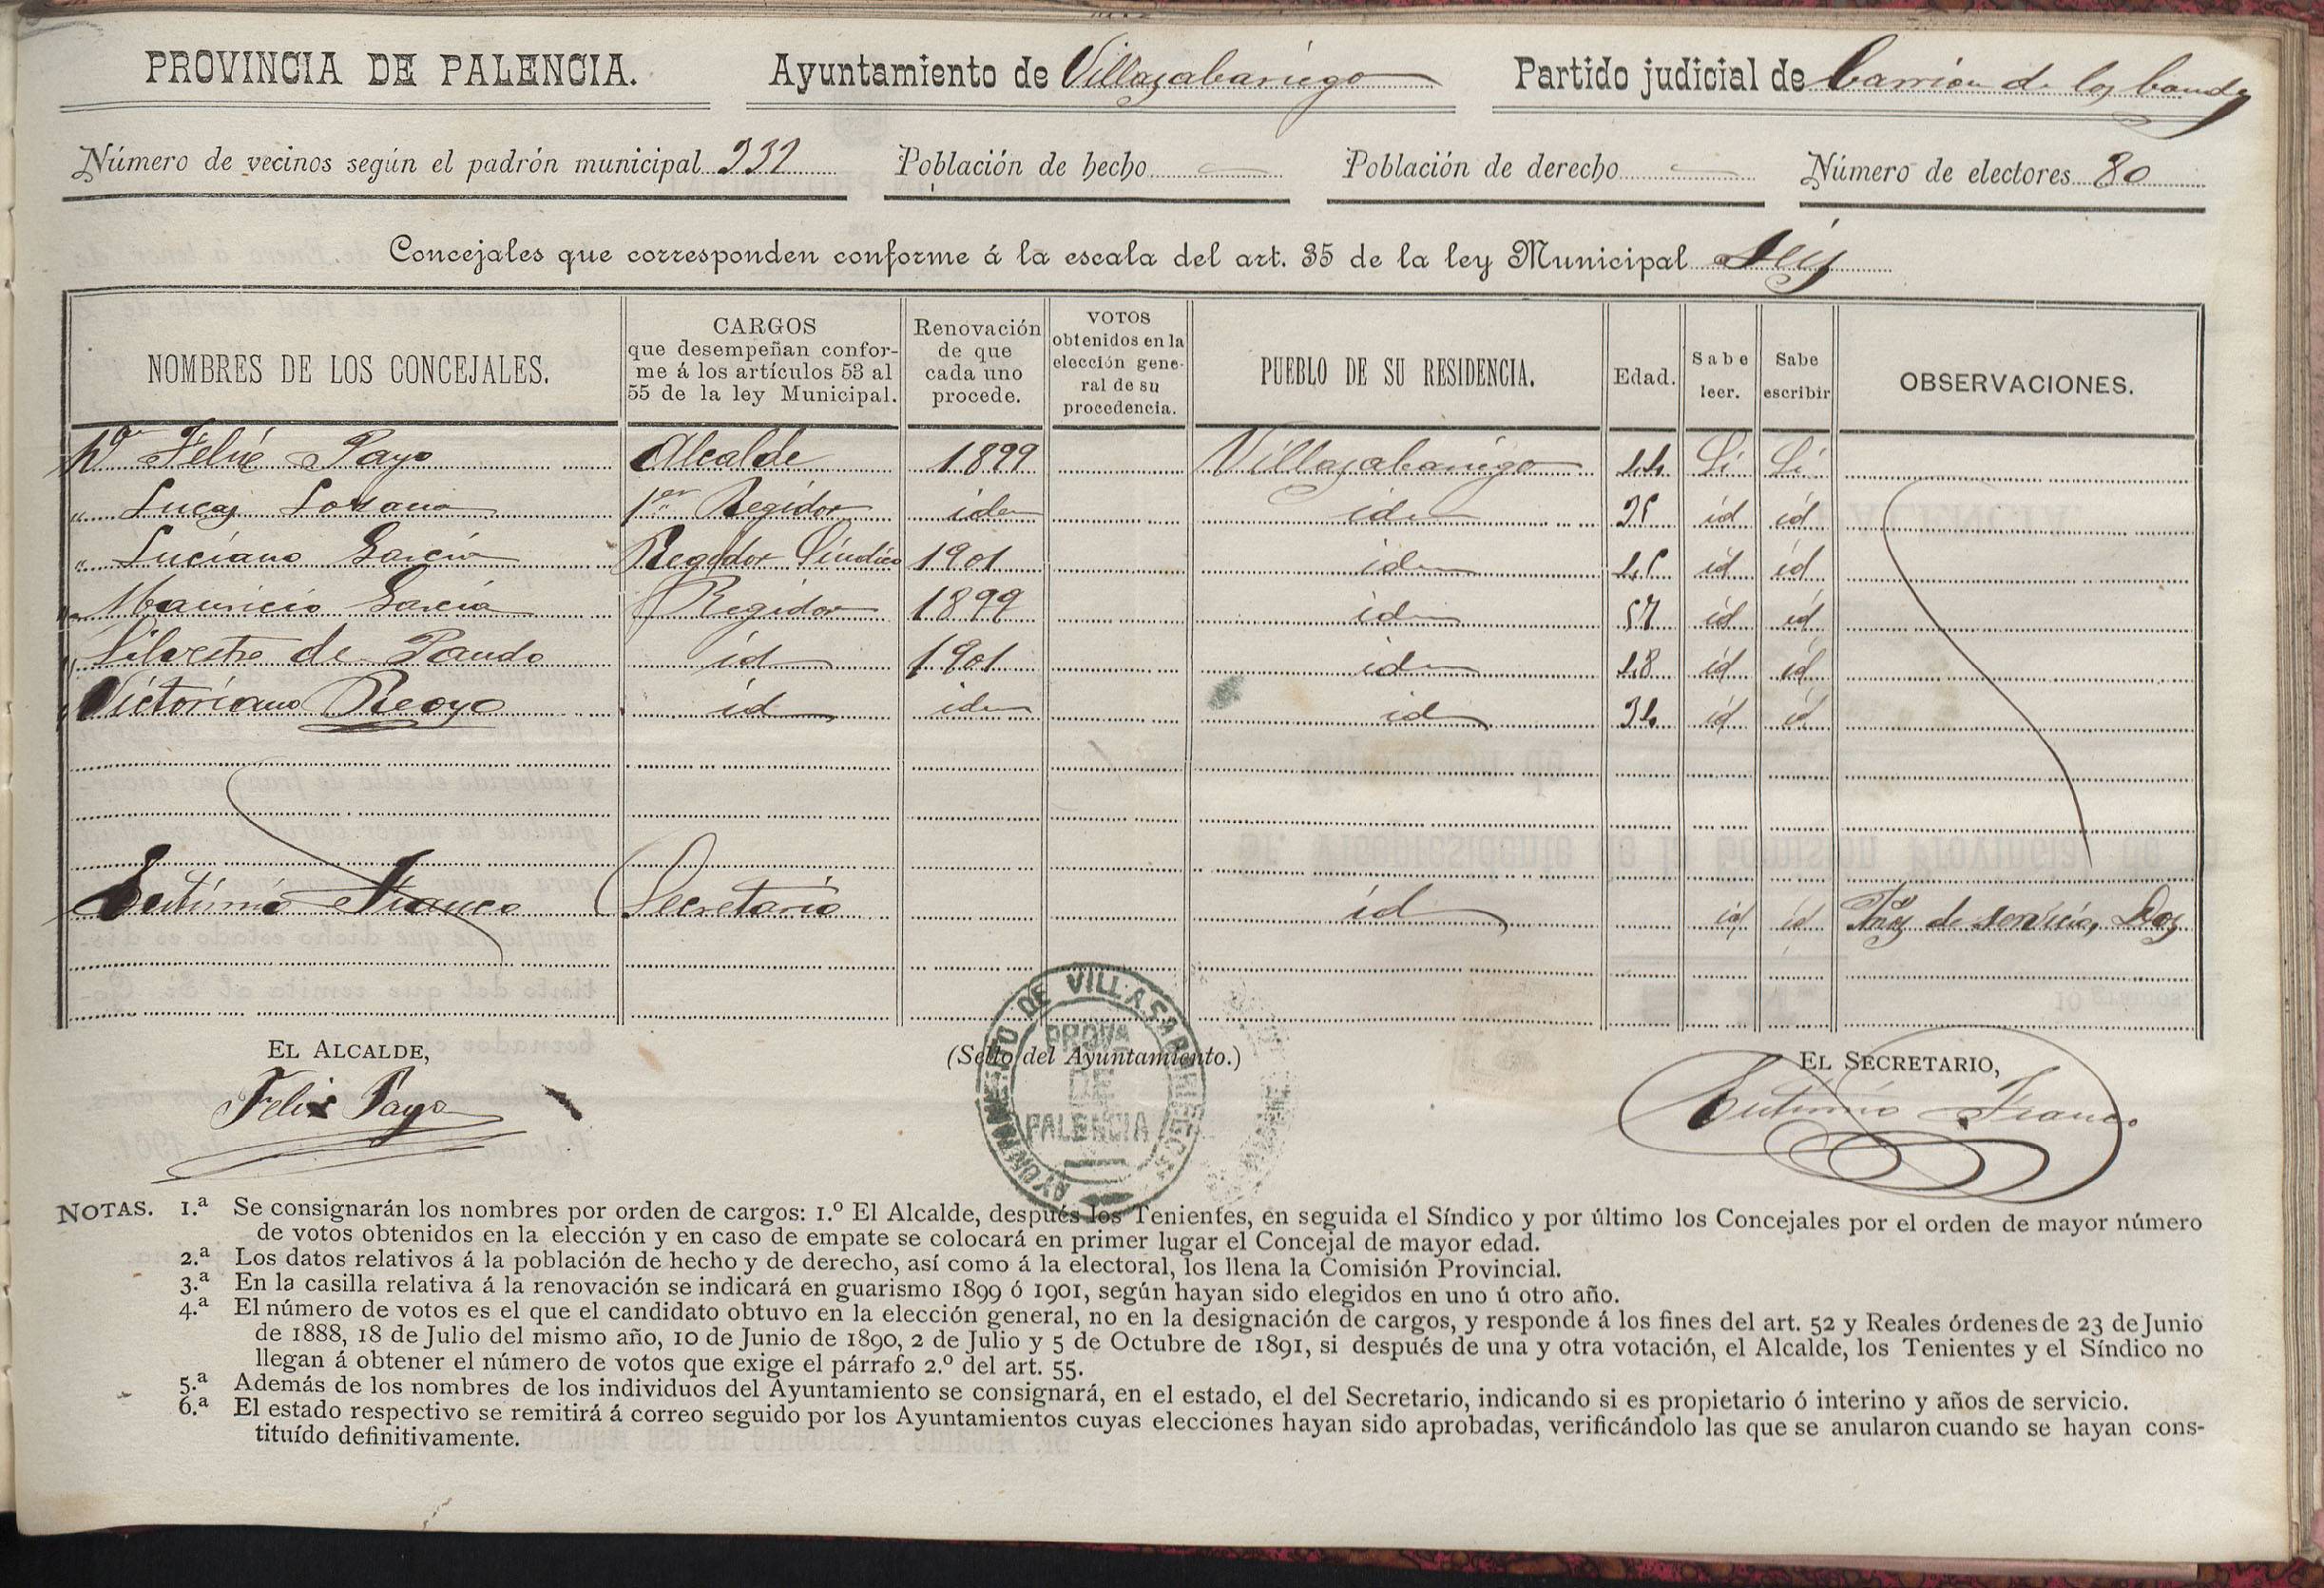 PROVINCIA DE PALENCIA. Ayuntamiento de Villasabariego Partido judicial de Carrión de los Condes
Número de vecinos según el padrón municipal 332 Población de hecho — Población de derecho — Número de electores 80
Concejales que corresponden conforme á la escala del art. 35 de la ley Municipal Seis
NOMBRES DE LOS CONCEJALES. CARGOS que desempeñan conforme á los artículos 53 al 55 de la ley Municipal. Renovación de que cada uno procede. VOTOS obtenidos en la elección general de su procedencia. PUEBLO DE SU RESIDENCIA. Edad. Sabe leer. Sabe escribir OBSERVACIONES.
Dn Felix Payo Alcalde 1899 Villasabariego 44 Si Si
" Lucas Lozano 1er Regidor idem idem 35 id id
" Luciano Garcia Regidor Sindico 1901 idem 45 id id
" Mauricio Garcia Regidor 1899 idem 57 id id
" Silvestre de Pando id 1901 idem 48 id id
" Victoriano Reoyo id idem id 34 id id
Eutimio Franco Secretario id id id Años de servicio, Dos
EL ALCALDE, (Sello del Ayuntamiento.) EL SECRETARIO,
Felix Payo Eutimio Franco
AYUNTAMIENTO DE VILLASABARIEGO
PROVA
DE
PALENCIA
NOTAS. 1.ª Se consignarán los nombres por orden de cargos: 1.º El Alcalde, después los Tenientes, en seguida el Síndico y por último los Concejales por el orden de mayor número
de votos obtenidos en la elección y en caso de empate se colocará en primer lugar el Concejal de mayor edad.
2.ª Los datos relativos á la población de hecho y de derecho, así como á la electoral, los llena la Comisión Provincial.
3.ª En la casilla relativa á la renovación se indicará en guarismo 1899 ó 1901, según hayan sido elegidos en uno ú otro año.
4.ª El número de votos es el que el candidato obtuvo en la elección general, no en la designación de cargos, y responde á los fines del art. 52 y Reales órdenes de 23 de Junio
de 1888, 18 de Julio del mismo año, 10 de Junio de 1890, 2 de Julio y 5 de Octubre de 1891, si después de una y otra votación, el Alcalde, los Tenientes y el Síndico no
llegan á obtener el número de votos que exige el párrafo 2.º del art. 55.
5.ª Además de los nombres de los individuos del Ayuntamiento se consignará, en el estado, el del Secretario, indicando si es propietario ó interino y años de servicio.
6.ª El estado respectivo se remitirá á correo seguido por los Ayuntamientos cuyas elecciones hayan sido aprobadas, verificándolo las que se anularon cuando se hayan cons-
tituído definitivamente.